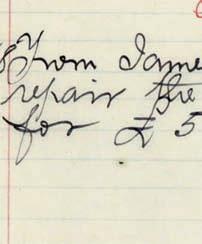 From Jame
repair the
for £ 5